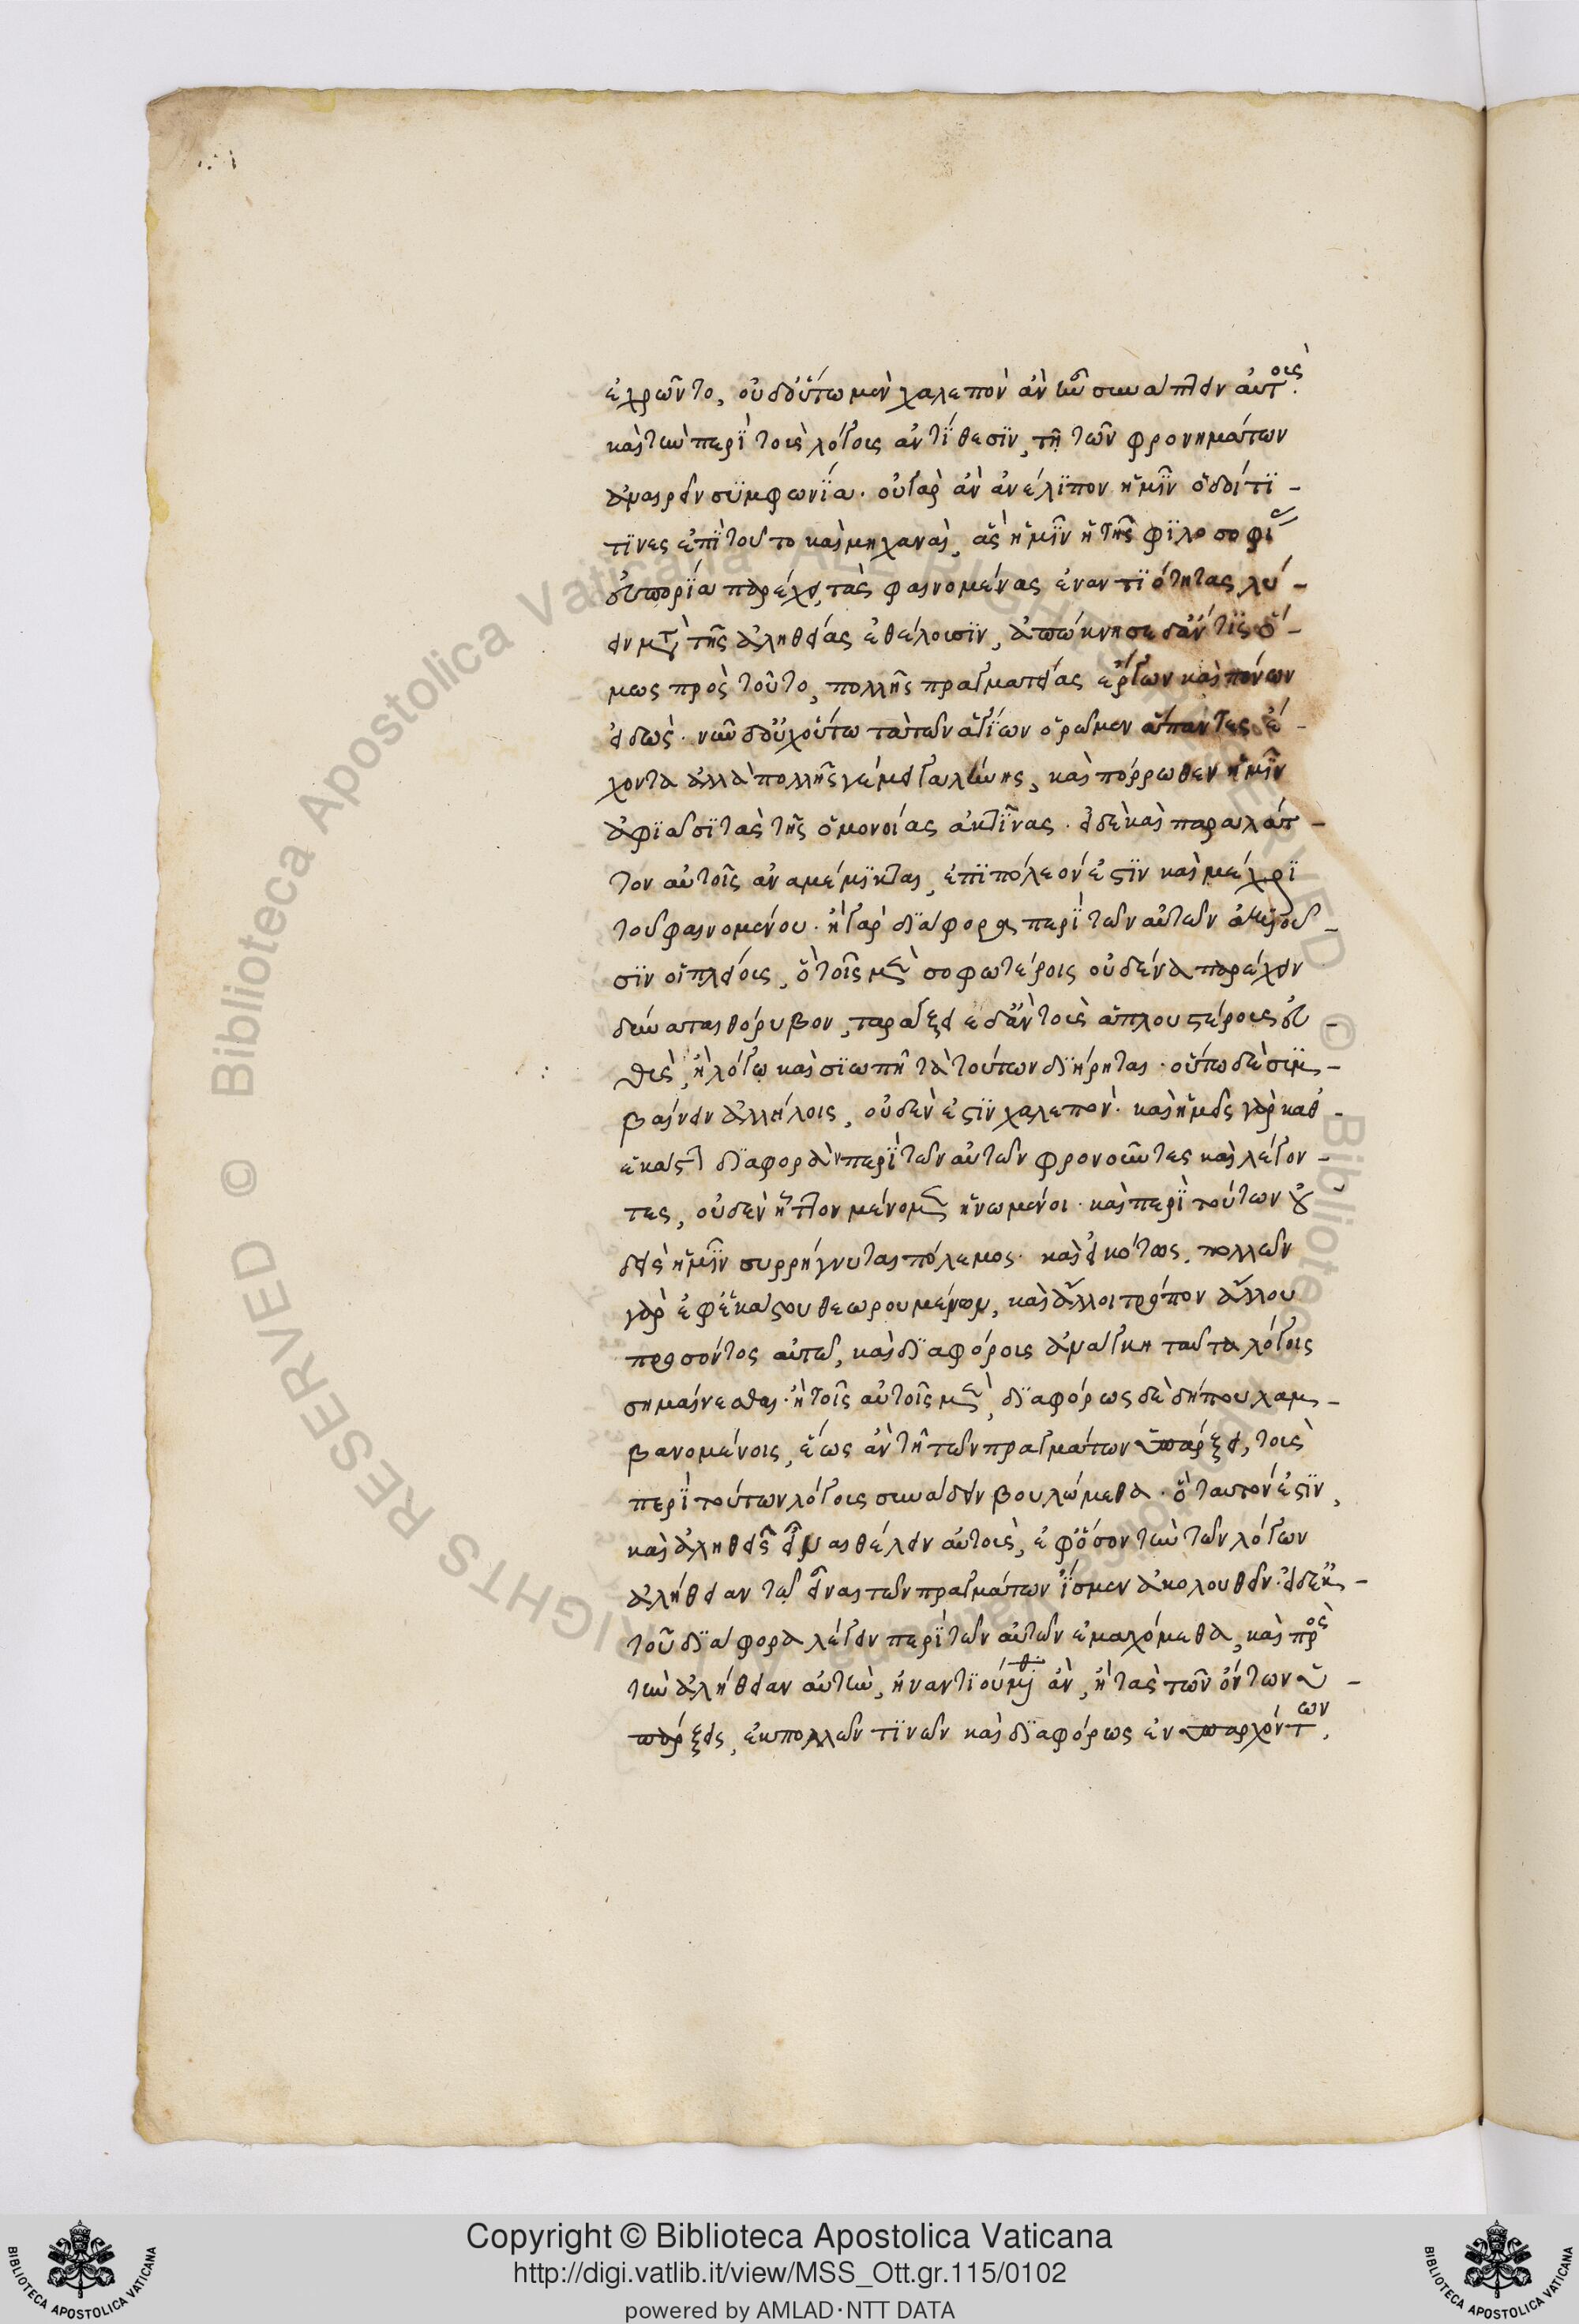 ἐχρῶντο, οὐδ' οὕτω μὲν χαλεπὸν ἂν ἦν συνάπτειν αὐτοῖς
καὶ τὴν περὶ τοὺς λόγους ἀντίθεσιν, τῇ τῶν φρονημάτων
ἀναιρεῖν συμφωνίᾳ. οὐ γὰρ ἂν ἀνέλιπον ἡμῖν ὁδοί τι-
τινες ἐπὶ τοῦτο καὶ μηχαναί, ἃς ἡμῖν ἡ τῆς φιλοσοφί
εὐπορία παρέχει, τὰς φαινομένας ἐναντιότητας λύ-
ειν μετὰ τῆς ἀληθείας ἐθέλουσιν, ἀπώκνησε δ' ἄν τις ὅ-
μως πρὸς τοῦτο, πολλῆς πραγματείας ἔργων καὶ πόνων
εἰδώς. νῦν δ' οὐχ οὕτω τὰ τῶν ἁγίων ὁρῶμεν ἅπαντες ἔ-
χοντα ἀλλὰ πολλῆς γέμει γαλήνης, καὶ πόρρωθεν ἡμῖν
ἀφιᾶσι τὰς τῆς ὁμονοίας ἀκτῖνας. εἰ δὲ καὶ παραλάτ-
τον αὐτοῖς ἀναμέμικται, ἐπιπόλεόν ἐστιν καὶ μέχρι
τοῦ φαινομένου. ἢ γὰρ διάφορα περὶ τῶν αὐτῶν
σιν οἱ πλείους, ὃ τοῖς μὲν σοφωτέροις οὐδένα παρέχειν
δύναται θόρυβον, ταράξειε δ' ἂν τοὺς ἁπλουστέρους εὐ-
θύς, ἢ λόγῳ καὶ σιωπῇ τὰ τούτων διῄρηται. οὕτω δὲ συμ-
βαίνειν ἀλλήλοις, οὐδέν ἐστιν χαλεπόν. καὶ ἡμεῖς γὰρ καθ'
ἑκάστην διάφορα περὶ τῶν αὐτῶν φρονοῦντες καὶ λέγον-
τες, οὐδὲν ἧττον μένομεν ἡνωμένοι. καὶ περὶ τούτων οὐ
δεὶς ἡμῖν συρρήγνυται πόλεμος. καὶ εἰκότως. πολλῶν
γὰρ ἐφ' ἑκάστου θεωρουμένων, καὶ ἄλλου τρόπον ἄλλου
προσόντος αὐτῷ, καὶ διαφόροις ἀνάγκη ταῦτα λόγοις
σημαίνεσθαι. ἢ τοῖς αὐτοῖς μὲν, διαφόρως δὲ δήπου λαμ-
βανομένοις, ἕως ἂν τῇ τῶν πραγμάτων ὑπάρξει, τοὺς
περὶ τούτων λόγους συνᾴδειν βουλώμεθα. ὃ ταυτόν ἐστιν,
καὶ ἀληθεῖς εἶναι θέλειν αὐτούς, ἐφ' ὅσον τὴν τῶν λόγων
ἀλήθειαν τῷ εἶναι τῶν πραγμάτων ἴσμεν ἀκολουθεῖν. εἰ δ' ἐκ
τοῦ διάφορα λέγειν περὶ τῶν αὐτῶν ἐμαχόμεθα, καὶ πρὸς
τὴν ἀλήθειαν αὐτήν, ἠναντιούμεθα ἄν, ἢ τὰς τῶν ὄντων ὑ-
πάρξεις, ἐκ πολλῶν τινῶν καὶ διαφόρως ἐνυπαρχόντων,
Copyright © Biblioteca Apostolica Vaticana
http://digi.vatlib.it/view/MSS_Ott.gr.115/0102
powered by AMLAD·NTT DATA